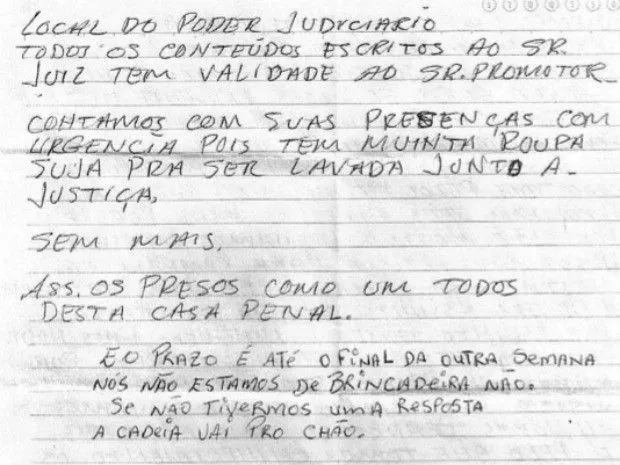 LOCAL DO PODER JUDICIARIO
TODOS OS CONTEÚDOS ESCRITOS AO SR.
JUIZ TEM VALIDADE AO SR. PROMOTOR_
CONTAMOS COM SUAS PRESENÇAS COM
URGENCIA POIS TEM MUINTA ROUPA
SUJA PRA SER LAVADA JUNTO A-
JUSTIÇA,
SEM MAIS,
ASS. OS PRESOS COMO UM TODOS
DESTA CASA PENAL.
E O PRAZO É ATÉ O FINAL DA OUTRA SEMANA
NÓS NÃO ESTAMOS DE BRINCADEIRA NÃO.
SE NÃO TIVERMOS UMA RESPOSTA
A CADEIA VAI PRO CHÃO.